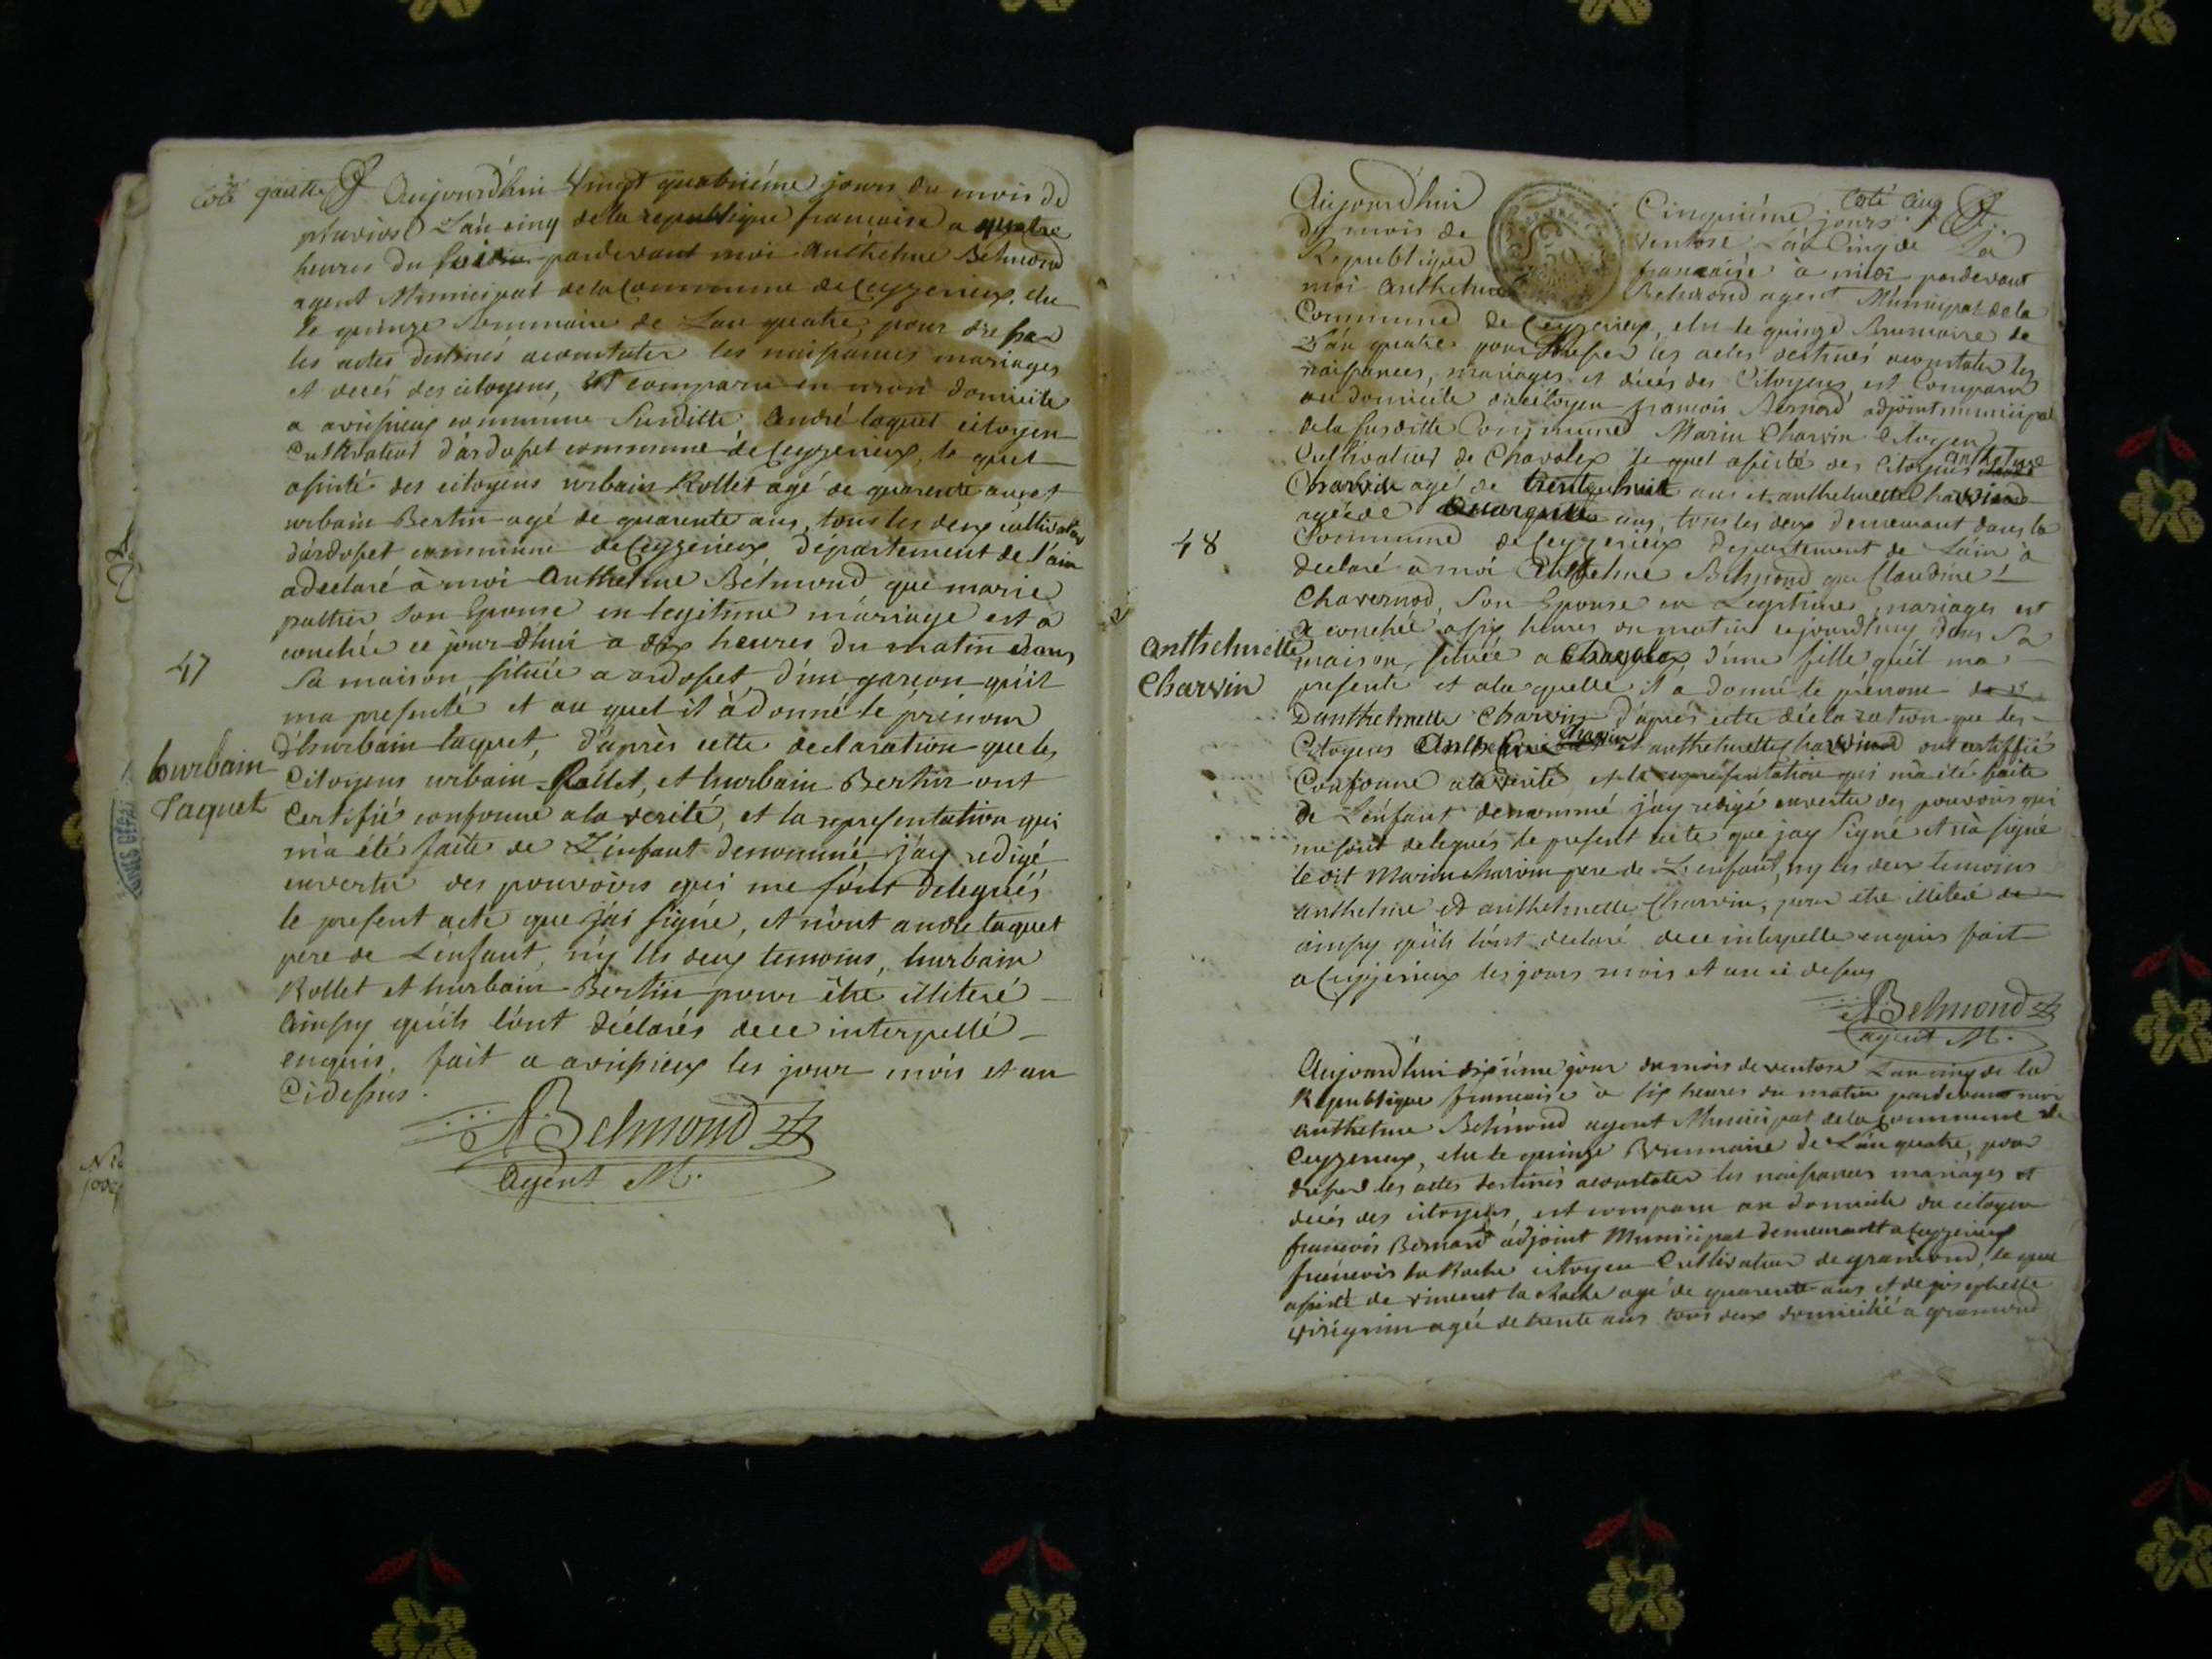 Coté quatre
Aujourd'hui vingt quatriéme jours du mois de
pluviose L'an cinq de la republique francaise a quatre
heures du pardevant moi anthelme Belmond
agent Municipal de la Commune de Ceyzerieux, elu
le quinze brumaire de Lan quatre, pour dresser
les actes destinés a constater les naissances mariages
et decés des citoyens, est comparu en mon domicile
a avissieux commune susditte, André taquet citoyen
Cultivateur d'ardosset commune de Ceyzerieux, le quel
assisté des citoyens urbain Rollet agé de quarente ans et
urbain Bertin agé de quarente ans, tous les deux cultivateurs
d'ardosset commune de Ceyzerieux Département de l'ain
a declaré à moi Anthelme Bélmond que marie
son Epouse en legitime màriage est a
couchée ce jour d'hui a dix heures du matin dans
sa maison située a ardosset d'un garcon qu'il
ma presenté et au quel il à donné le prénom
d'hurbain taquet, d'après cette declaration que les
Citoyens urbain Rollet, et hurbain Bertin ont
Certifié conforme a la verité, et la representation qui
m'a été faite de L'enfant denommé, j'ay redigé
envertu des pouvoirs qui me sont delegués
le present acte que j'ai signé, et n'ont andré taquet
pere de L'enfant, n'y les deux temoins, hurbain
Rollet et hurbain Bertin pour être illiteré
ainssy qu'ils l'ont déclarés de ce interpellé
enquis, fait a avissieux les jour mois et an
Cidessus.
ABelmond
agent M.
47
hurbain
Taquet
Coté cinq
Aujourd'hui Cinquiéme jours
du mois de ventose L'an Cinq de La
Republique francaise à midi pardevant
moi anthelme Belmond agent Municipal de la
Commune de Ceyzerieux, elu le quinze Brumaire de
L'an quatre pour dresser les actes destinés a constater les
naissances, mariages et décés des Citoyens, est Comparu
au domicile du citoyen francois Bernard adjoint municipal
de la susditte Commune Marin Charvin Citoyen
Cultivateur de Chavolex le quel assisté des Citoyens anthelme
Charvin agé de trente huit ans et anthelmette Charvin
agée de ans, tous les deux demeurant dans la
Commune de Ceyzerieux departement de Láin a
declaré à moi Anthelme Belmond que Claudine
Chavernod, son Epouse en Legitime mariages est
a couchée a six heures du matin cejourdhuy dans sa
maison située a Chavolex d'une fille qu'il ma
presenté et a la quelle il a donné le prénom
Danthelmette Charvin d'après cette déclaration que les
Citoyens Anthelme Charvin et anthelmette Charvin ont certiffié
Conforme a la verité, et la representation qui m'a été faite
de L'enfant denommé j'ay redigé envertu des pouvoirs qui
me sont delegués le present acte que jay signé et n'à signé
le dit Marin Charvin pere de L'enfant, ny les deux temoins
anthelme et anthelmette Charvin, pour etre illiteré
ainssy qu'ils l'ont declaré de ce interpellé enquis fait
a Ceyzerieux les jours mois et an ci dessus
ABelmond
agent M.
48
Anthelmette
Charvin
Aujourd'hui dixiéme jour du mois de ventose Lan cinq de la
Republique francaise à six heures du matin pardevant moi
anthelme Belmond agent Municipal de la Commune de
Ceyzerieux, elu le quinze Brumaire de L'an quatre, pour
dresser les actes destinés a constater les naissances mariages et
decés des citoyens, est comparu au domicile du citoyen
francois Bernard adjoint Municipal demeurant a Ceyzerieux
francois la Roche citoyen Cultivateur de gramond, le quel
assisté de vincent la Roche agé de quarente ans et de josephette
agée de trente ans tous deux domicilié a gramond